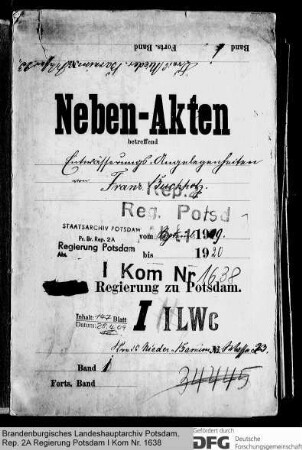 Forts. Band
Band 1
Neben-Akten
betreffend
Entwässerungs-Angelegenheiten
von Franz
Rep.
Reg. Potsd
STAATSARCHIV POTSDAM
Pr. Br. Rep. 2A
Regierung Potsdam
Abt.
vom 1909.
bis 1920
I Kom Nr 1638
Regierung zu Potsdam.
Inhalt: 147 Blatt
Datum: 28.4.69
I I LWc
Kreis Nieder-Barnim 23.
Band 1
Forts. Band
34445
Brandenburgisches Landeshauptarchiv Potsdam,
Rep. 2A Regierung Potsdam I Kom Nr. 1638
Gefördert durch
DFG Deutsche
Forschungsgemeinschaft